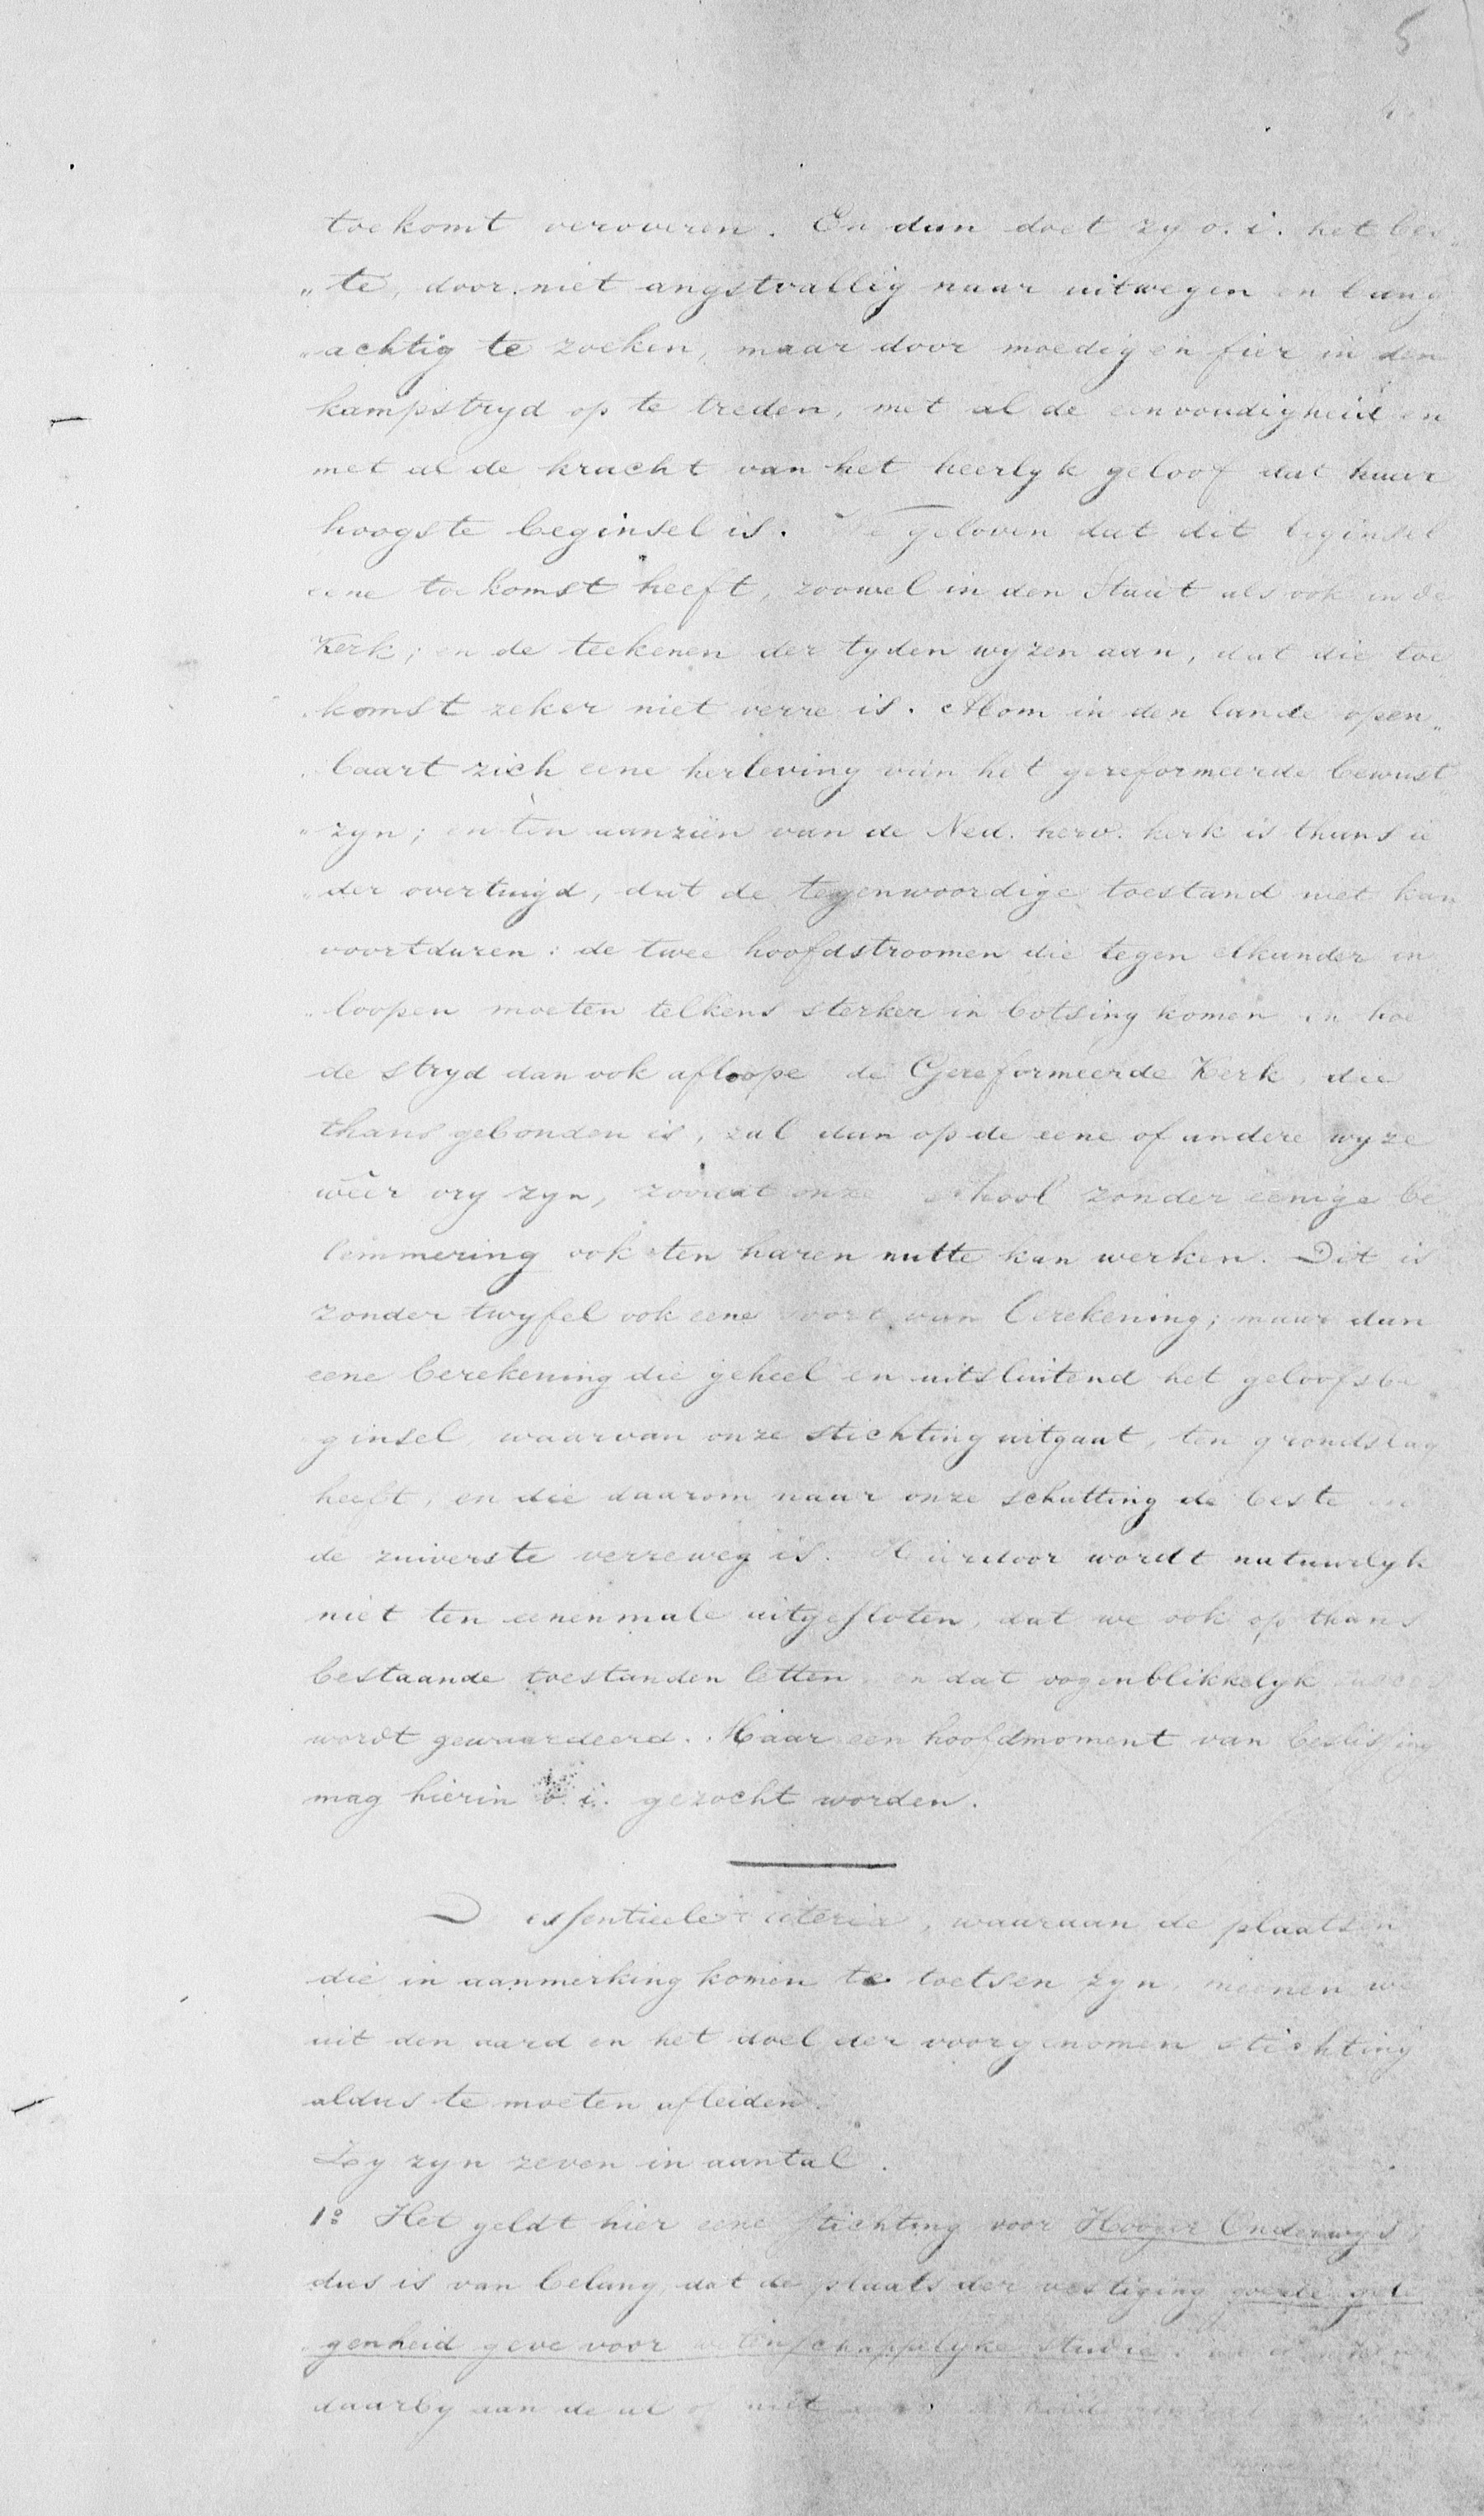 5
toekomt veroveren. En dan doet zy o. i. het bes„
„te, door niet angstvallig naar uitwegen en bang
„achtig te zoeken, maar door moedig en fier in den
kampstryd op te treden, met al de eenvoudigheid en
met al de kracht van het heerlyk geloof dat haar
hoogste beginsel is. We geloven dat dit beginsel
eene toekomst heeft, zoowel in den Staat als ook in de
Kerk; en de teekenen der tyden wyzen aan, dat die toe
komst zeker niet verre is. Alom in den lande open„
„baart zich eene herleving van het gereformeerde bewust
„zyn; en ten aanzien van de Ned. herv. kerk is thans ie
„der overtuigd, dat de tegenwoordige toestand niet kan
voortduren: de twee hoofdstroomen die tegen elkander in
„loopen moeten telkens sterker in botsing komen en hoe
de stryd dan ook afloope de Gereformeerde Kerk, die
thans gebonden is, zal dan op de eene of andere wyze
wèer vry zyn, zoodat onze school zonder eenige be
lommering ook ten haren nutte kan werken. Dit is
zonder twyfel ook eene soort van berekening; maar dan
eene berekening die geheel en uitsluitend het geloofsbe„
ginsel, waarvan onze stichting uitgaat, ten grondslag
heeft, en die daarom naar onze schatting de beste en
de zuiverste verreweg is. Hierdoor wordt natuurlyk
niet ten eenenmale uitgesloten, dat we ook op thans
bestaande toestanden letten, en dat oogenblikkelyk succes
wordt gewaardeerd. Maar een hoofdmoment van beslissing
mag hierin o. i. gezocht worden.
De essentieele criteria, waaraan de plaatsen
die in aanmerking komen te toetsen zyn, meenen we
uit den aard en het doel der voorgenomen stichting
aldus te moeten afleiden.
Zy zyn zeven in aantal.
1º Het geldt hier eene stichting voor Hooger Onderwys;
dus is van belang dat de plaats der vestiging goede gele
„genheid geve voor wetenschappelyke studie:
daarby aan de al of niet